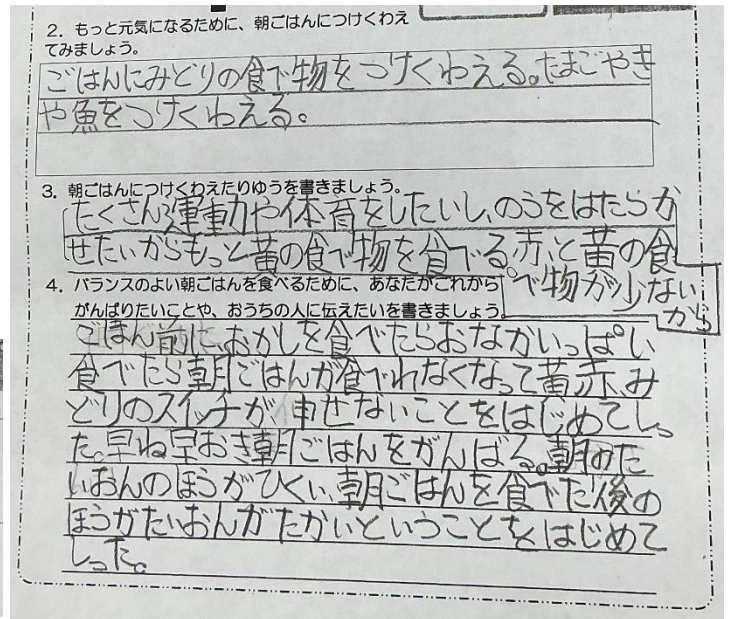 2. もっと元気になるために、朝ごはんにつけくわえ
てみましょう。
ごはんにみどりの食で物をつけくわえる。たまごやき
や魚をつけくわえる。
3. 朝ごはんにつけくわえたりゆうを書きましょう。
たくさん運動や体育をしたいし、のうをはたらか
せたいからもっと黄の食で物を食でる。赤、と黄の食
で物が少ない
から
4. バランスのよい朝ごはんを食べるために、あなたがこれから
がんばりたいことや、おうちの人に伝えたいを書きましょう。
ごはん前に、おかしを食べたらおなかいっぱい
食べたら朝ごはんが食でれなくなって黄、赤、み
どりのスイッチが、押せないことをはじめてしっ
た。早ね早おき朝ごはんをがんばる。朝のた
いおんのほうがひくい、朝ごはんを食べた後の
ほうがたいおんがたかいということをはじめて
しった。